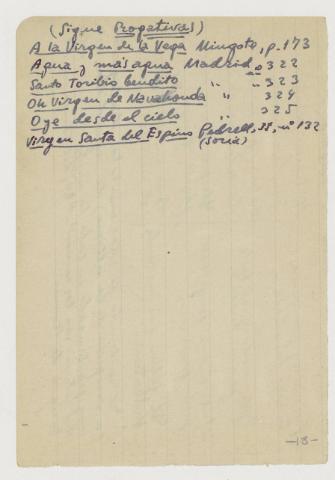 (Sigue Rogativas)
A la Virgen de la Vega Mingote, p. 173
Agua y más agua Madrid, nº 322
Santo Toribio bendito " " 323
Oh Virgen de Navahonda " 324
Oye desde el cielo " 325
Virgen Santa del Espino Pedrell, II, nº 132
(Soria)
-13-